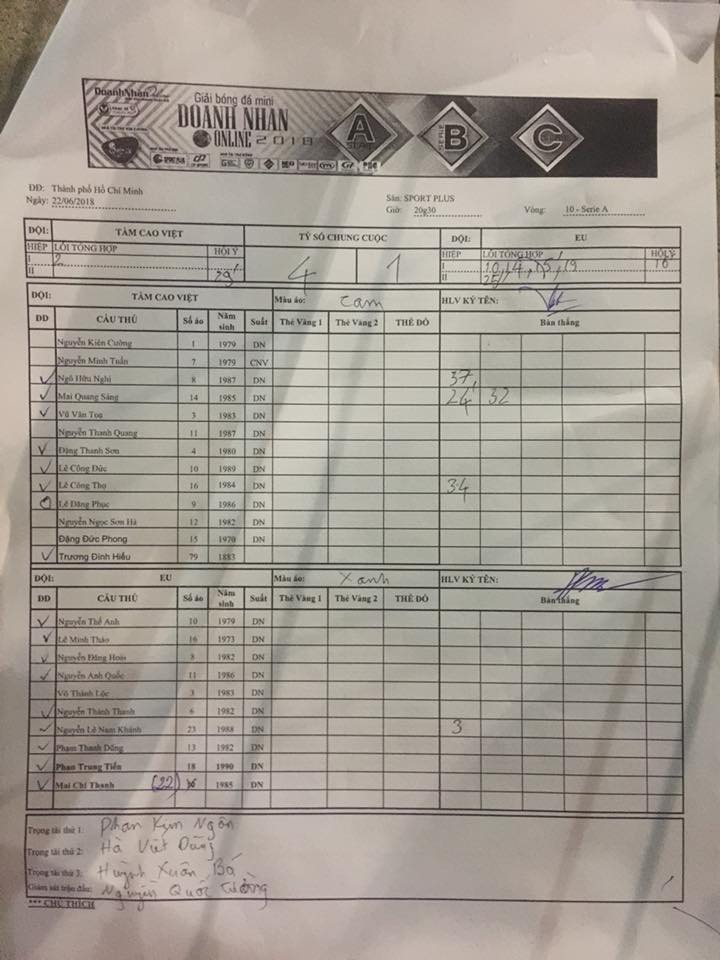 DoanhNhân Online
Giải bóng đá mini
DOANH NHÂN
ONLINE 2018
A
SERIE
B
SERIE
C
DĐ: Thành phố Hồ Chí Minh
Ngày: 22/06/2018
Sân: SPORT PLUS
Giờ: 20g30 Vòng: 10 - Serie A
ĐỘI: TÂM CAO VIỆT TỶ SỐ CHUNG CUỘC ĐỘI: EU
HIỆP LỖI TỔNG HỢP HỘI Ý 4 1 HIỆP LỖI TỔNG HỢP HỘI Ý
I 2 I 10, 14, 15, 19 16
II 29' II 25'
ĐỘI: TÂM CAO VIỆT Màu áo: Cam HLV KÝ TÊN:
DD CẦU THỦ Số áo Năm sinh Suất Thẻ Vàng 1 Thẻ Vàng 2 THẺ ĐỎ Bàn thắng
Nguyễn Kiên Cường 1 1979 DN
Nguyễn Minh Tuấn 7 1979 CNV
✓ Ngô Hữu Nghị 8 1987 DN 37,
✓ Mai Quang Sáng 14 1985 DN 24 32
✓ Vũ Văn Toạ 3 1983 DN
Nguyễn Thanh Quang 11 1987 DN
✓ Đặng Thanh Sơn 4 1980 DN
✓ Lê Công Đức 10 1989 DN
✓ Lê Công Thọ 16 1984 DN 34
Lê Đăng Phục 9 1986 DN
Nguyễn Ngọc Sơn Hà 12 1982 DN
Đặng Đức Phong 15 1970 DN
✓ Trương Đình Hiếu 79 1883
ĐỘI: EU Màu áo: Xanh HLV KÝ TÊN:
DD CẦU THỦ Số áo Năm sinh Suất Thẻ Vàng 1 Thẻ Vàng 2 THẺ ĐỎ Bàn thắng
✓ Nguyễn Thế Anh 10 1979 DN
✓ Lê Minh Thảo 16 1973 DN
✓ Nguyễn Đăng Hoài 8 1982 DN
✓ Nguyễn Anh Quốc 11 1986 DN
Võ Thành Lộc 3 1983 DN
✓ Nguyễn Thành Thanh 6 1982 DN
✓ Nguyễn Lê Nam Khánh 23 1988 DN 3
✓ Phạm Thanh Dũng 13 1982 DN
✓ Phan Trung Tiến 18 1990 DN
✓ Mai Chí Thanh (22) 1985 DN
Trọng tài thứ 1: Phan Kym Ngân
Trọng tài thứ 2: Hà Việt Dũng
Trọng tài thứ 3: Huỳnh Xuân Bá
Giám sát trận đấu: Nguyễn Quốc Cường
*** CHÚ THÍCH